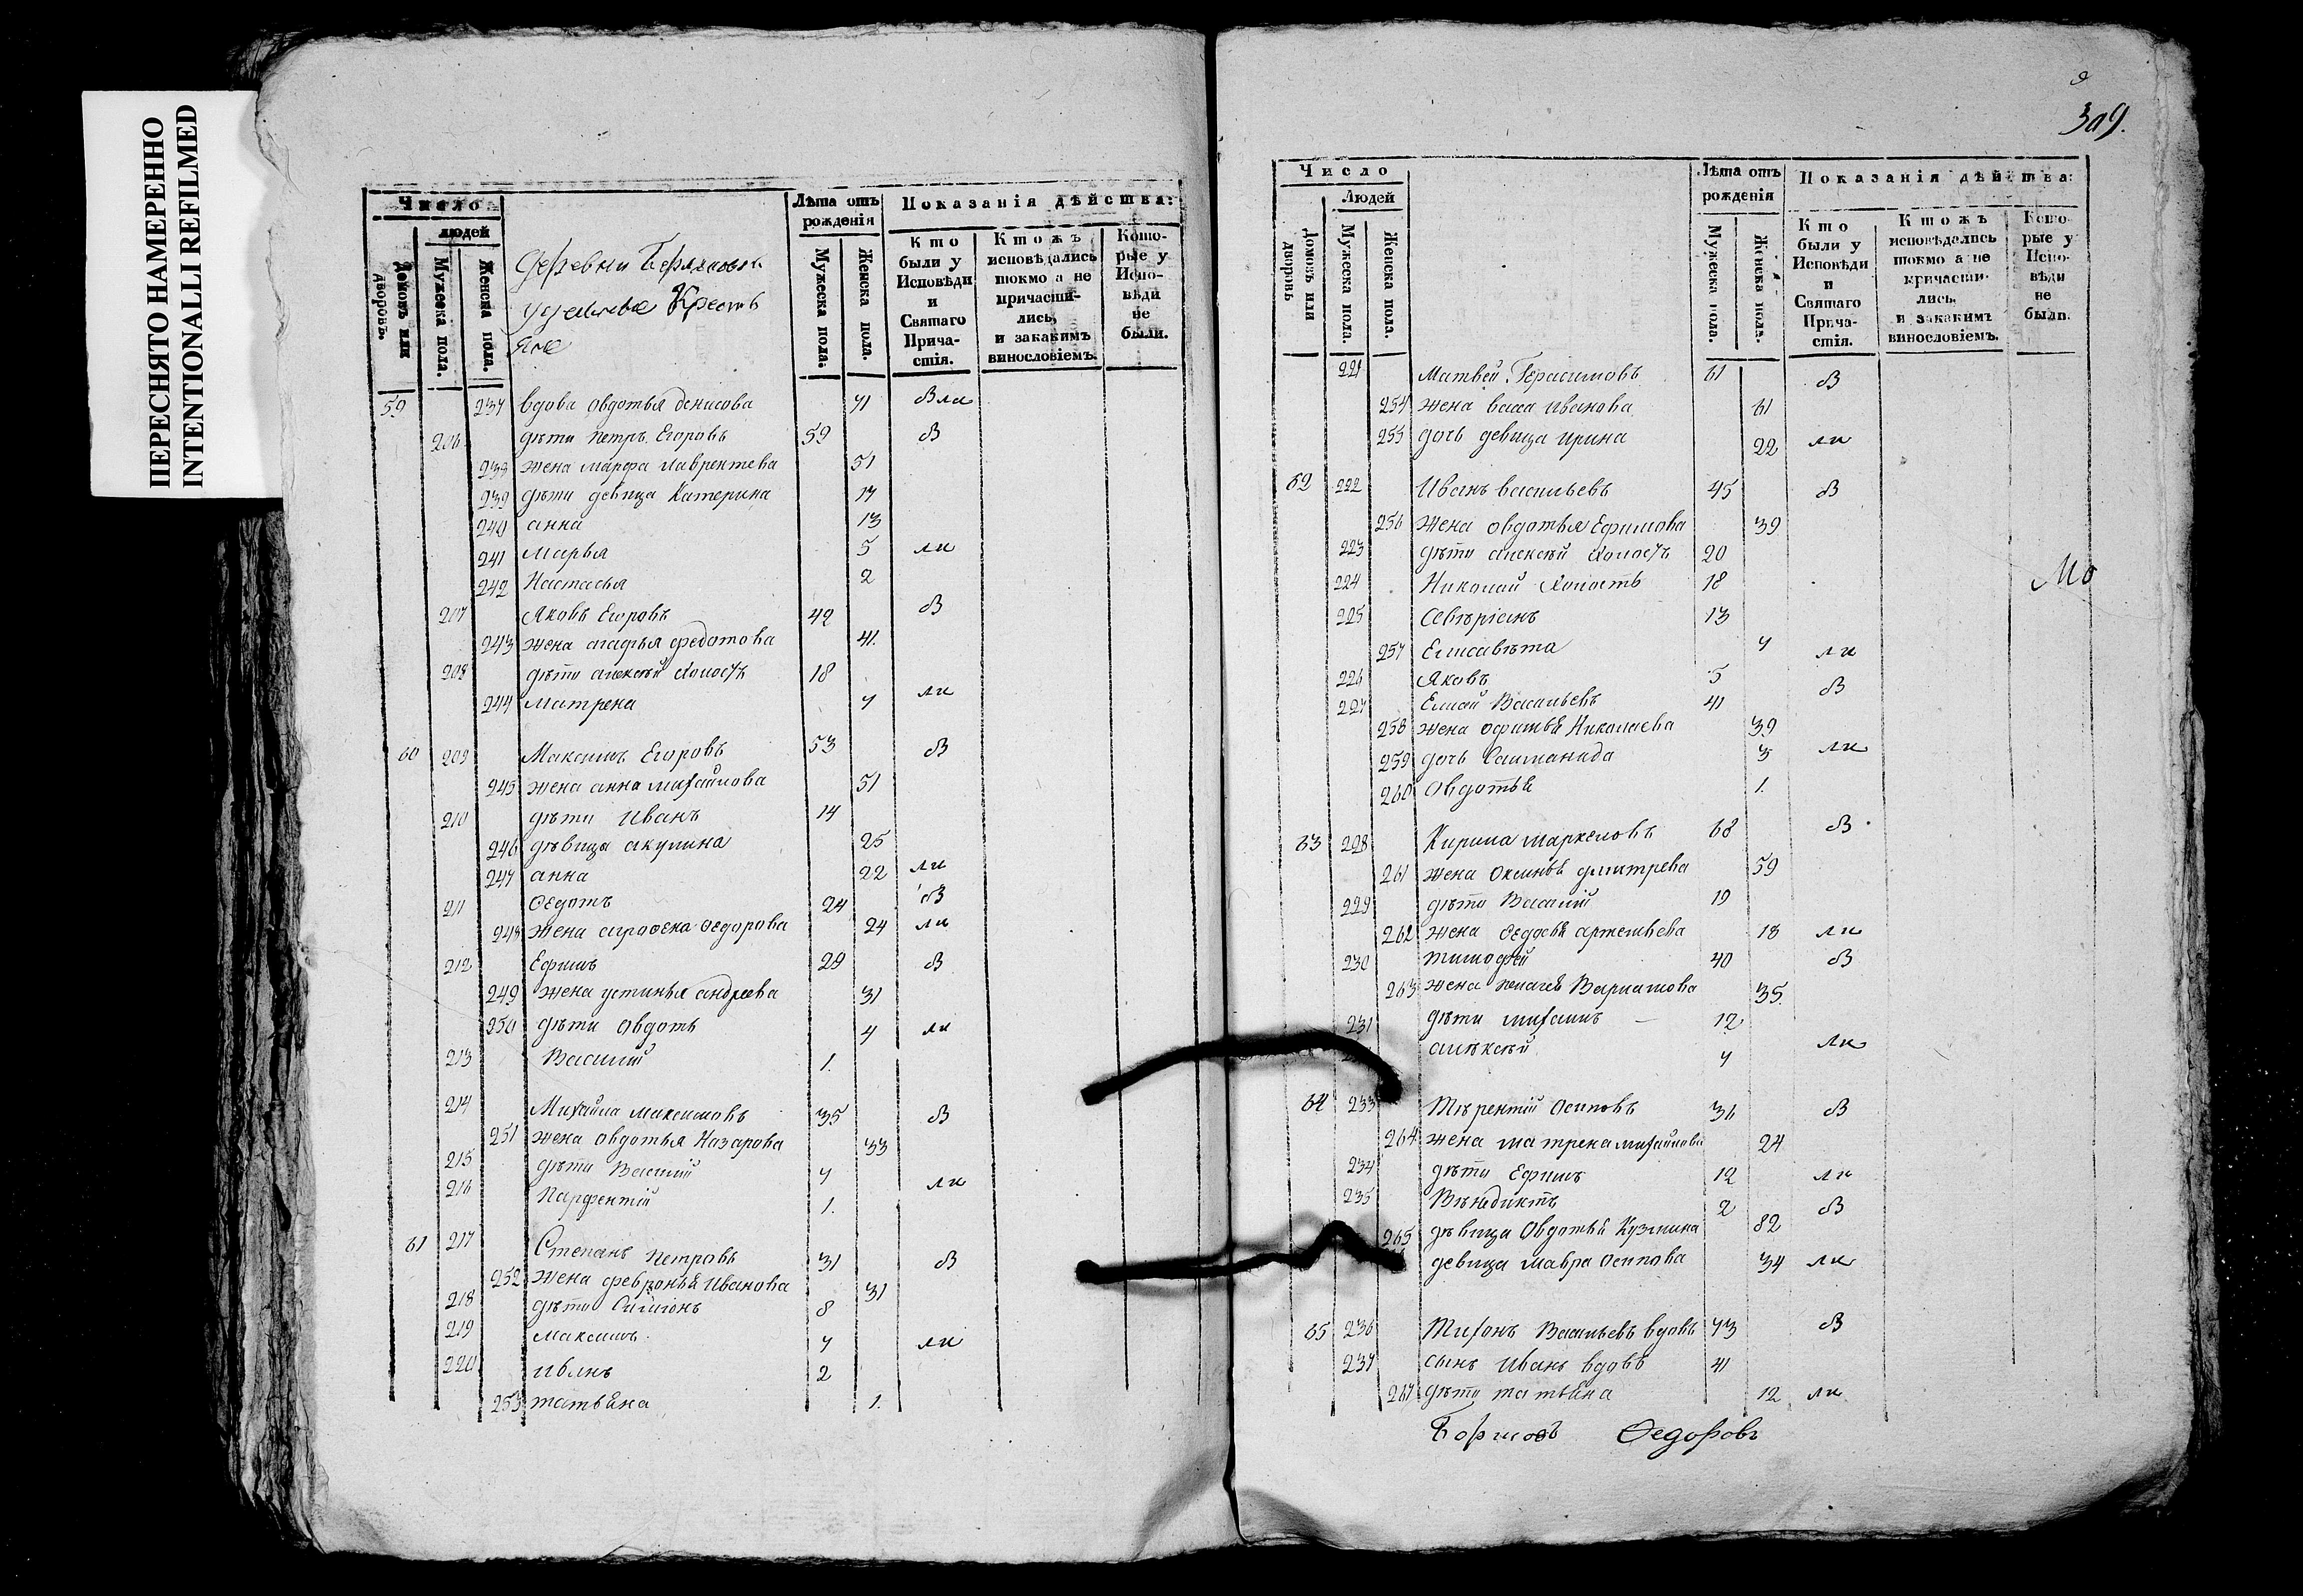 ПЕРЕСНЯТО НАМЕРЕННО
INTENTIONALLI REFILMED
Число
людей
Домовъ или дворовъ.
Мужеска пола.
Женска пола.
Деревни
Лѣта отъ рожденія
Мужеска пола.
Женска пола.
Показанія дѣйства:
Кто были у Исповѣди и Святаго Прича-стія.
Ктожъ исповѣдались токмо а не причасти-лись, и закакимъ винословіемъ.
Кото-рые у Испо-вѣди не были.
59 237 вдова овдотья денисова 71
206 дѣти Петръ Егоровъ 59 В
238 жена марфа лаврентева 51
239 дѣти девица Катерина 17
240 анна 13
241 Марья 5 ли
242 Настасья 2
207 Яковъ Егоровъ 42 В
243 жена агафья федотова 41.
208 дѣти алексѣй холостъ 18
244 матрена 7 ли
60 209 Максимъ Егоровъ 53 В
245 жена анна михайлова 51
210 дѣти Иванъ 14
246 дѣвица акулина 25
247 анна 22 ли
211 Ѳедотъ 24 В
248 жена Ѳедорова 24 ли
212 Ефимъ 29 В
249 жена устинья андреева 31
250 дѣти Овдоть 7 ли
213 Василій 1.
214 Михайла максимовъ 35 В
251 жена овдотья Назарова 33
215 дѣти Василій 7
216 Парфентій 1. ли
61 217 Степанъ Петровъ 31 В
252 жена февронья Иванова 31
218 дѣти 8
219 максимъ 7 ли
220 иванъ 2
253 татьяна 1.
309.
Число
Людей
Домовъ или дворовъ
Мужеска пола.
Женска пола.
Лѣта отъ рожденія
Мужеска пола.
Женска пола.
Показанія дѣйства:
Кто были у Исповѣди и Святаго Прича-стія.
Ктожъ исповѣдались токмо а не причасти-лись, и закакимъ винословіемъ.
Кото-рые у Испо-вѣди не были.
221 Матвей Герасимовъ 61 В
254 жена васа иванова 61
255 дочь девица ирина 22 ли
62 222 Иванъ васильевъ 45 В
256 жена овдотья Ефимова 39
223 дѣти алексѣй холостъ 20
224 Николай холостъ 18
225 13
257 Елисавѣта 7 ли
226 Яковъ 5
227 Васильевъ 41 В
258 жена Николаева 39
259 дочь 3 ли
260 овдотья 1.
63 228 Кирила маркеловъ 68 В
261 жена Оксинья дмитрева 59
229 дѣти Василій 19
262 жена 18 ли
230 тимофѣй 40 В
263 жена 35.
231 дѣти михаилъ 12
алѣксѣй 7 ли
64 233 Тѣрентій Осиповъ 36 В
264 жена матрена михайлова 24
234 дѣти Ефимъ 12 ли
235 Вѣнедиктъ 2 В
265 дѣвица Овдотья Кузмина 82
девица мавра осипова 34 ли
65 236 Тихонъ Васильевъ вдовъ 73 В
237 сынъ Иванъ вдовъ 41
267 дѣти татьяна 12 ли
Ѳедоровъ